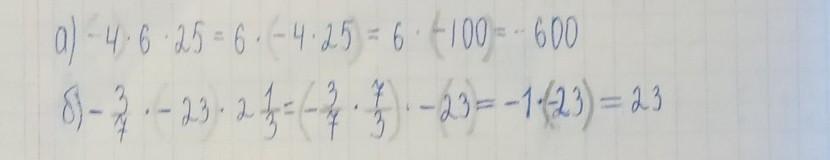 а) -4 · 6 · 25 = 6 · (-4 · 25) = 6 · (-100) = -600
б) - 3/7 · (-23) · 2 1/3 = (- 3/7 · 7/3) · -(23) = -1 · (-23) = 23